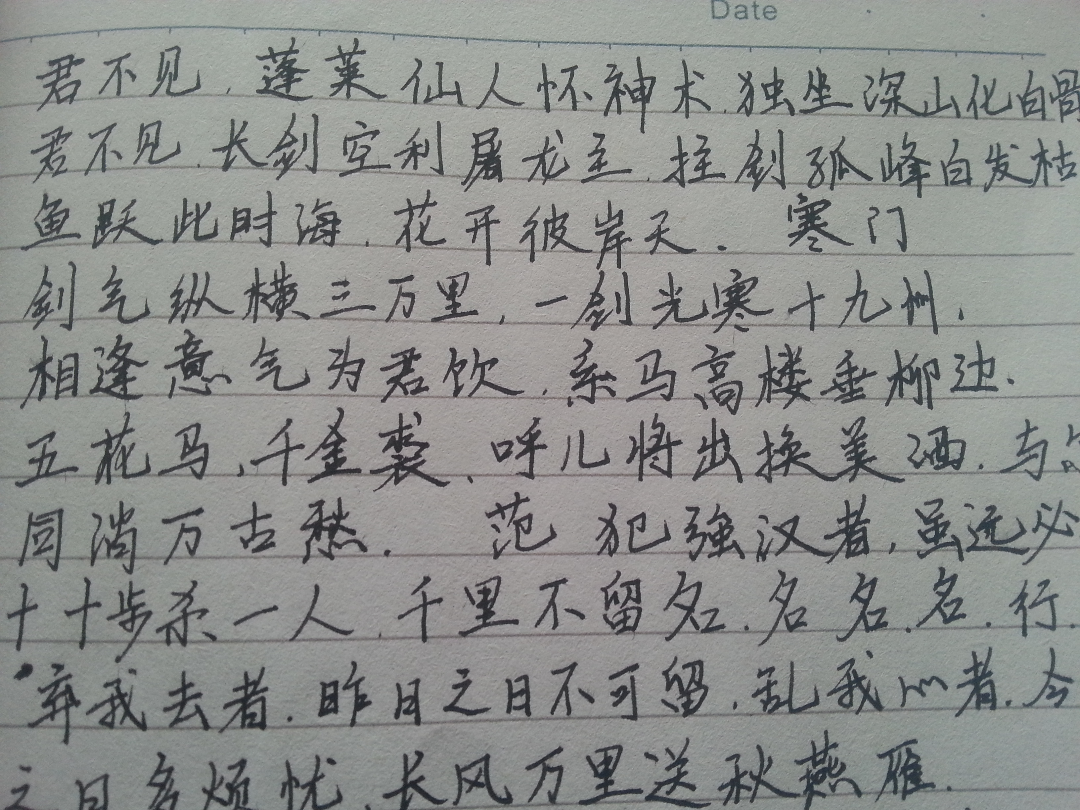 Date
君不见，蓬莱仙人怀神术，独坐深山化白骨
君不见，长剑空利屠龙主，拄剑孤峰白发枯
鱼跃此时海，花开彼岸天。 寒门
剑气纵横三万里，一剑光寒十九州，
相逢意气为君饮，系马高楼垂柳边.
五花马，千金裘，呼儿将出换美酒，与
同消万古愁. 范 犯强汉者，虽远必
十十步杀一人，千里不留名，名名，名，行，
弃我去者，昨日之日不可留，乱我心者，今
之日多烦忧，长风万里送秋燕雁.